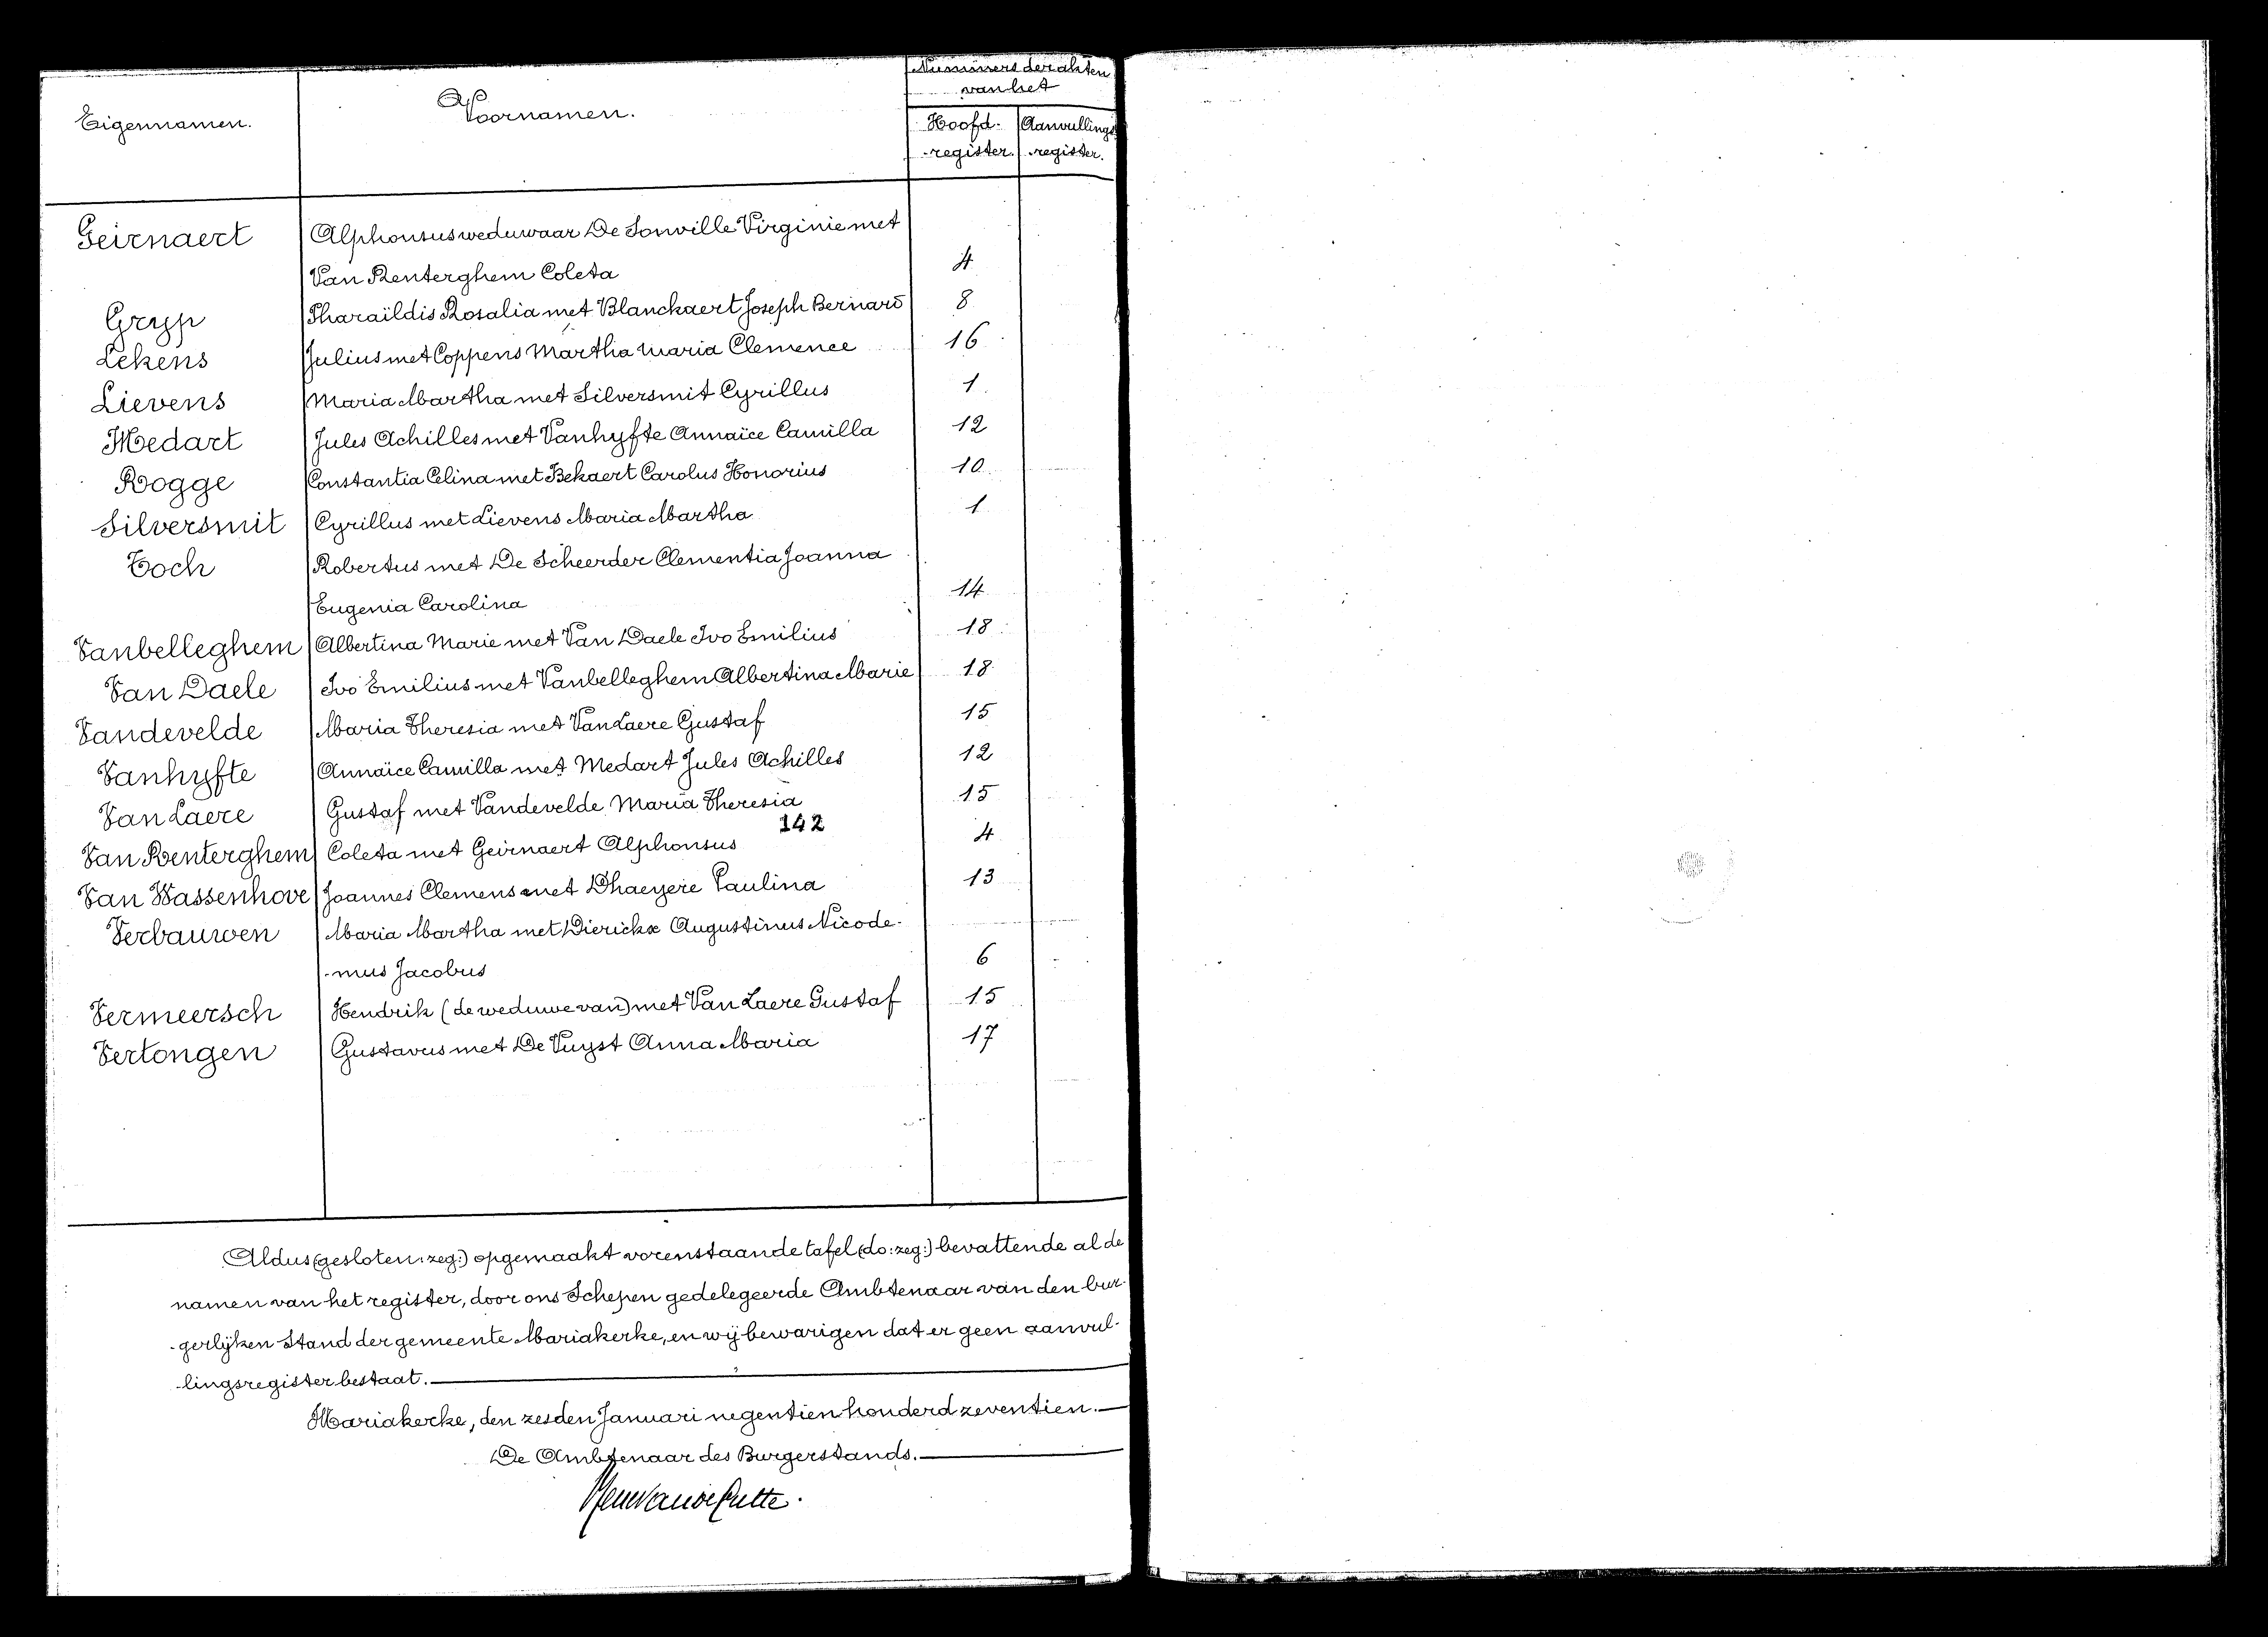 Nummers der akten
van het
Eigennamen. Voornamen. Hoofd- Aanvullings
-register. -register.
Geirnaert Alphonsus weduwaar De Sonville Virginie met
Van Renterghem Coleta 4
Gryp Pharaïldis Rosalia met Blanckaert Joseph Bernard 8
Lekens Julius met Coppens Martha Maria Clemence 16
Lievens Maria Martha met Silversmit Cyrillus 1
Medart Jules Achilles met Vanhyfte Annaïce Camilla 12
Rogge Constantia Celina met Bekaert Carolus Honorius 10
Silversmit Cyrillus met Lievens Maria Martha 1
Toch Robertus met De Scheerder Clementia Joanna
Eugenia Carolina 14
Vanbelleghem Albertina Marie met Van Daele Ivo Emilius 18
Van Daele Ivo Emilius met Vanbelleghem Albertina Marie 18
Vandevelde Maria Theresia met Van Laere Gustaf 15
Vanhyfte Annaïce Camilla met Medart Jules Achilles 12
Van Laere Gustaf met Vandevelde Maria Theresia 15
142
Van Renterghem Coleta met Geirnaert Alphonsus 4
Van Wassenhove Joannes Clemens met Dhaeyere Paulina 13
Verbauwen Maria Martha met Dierickx Augustinus Nicode-
-mus Jacobus 6
Vermeersch Hendrik (de weduwe van) met Van Laere Gustaf 15
Vertongen Gustavus met De Vuyst Anna Maria 17
Aldus (gesloten: zeg:) opgemaakt vorenstaande tafel (do: zeg:) bevattende al de
namen van het register, door ons Schepen gedelegeerde Ambtenaar van den bur-
-gerlijken Stand der gemeente Mariakerke, en wij bewarigen dat er geen aanvul-
-lingsregister bestaat.
Mariakerke, den zesden Januari negentien honderd zeventien.
De Ambtenaar des Burgerstands.